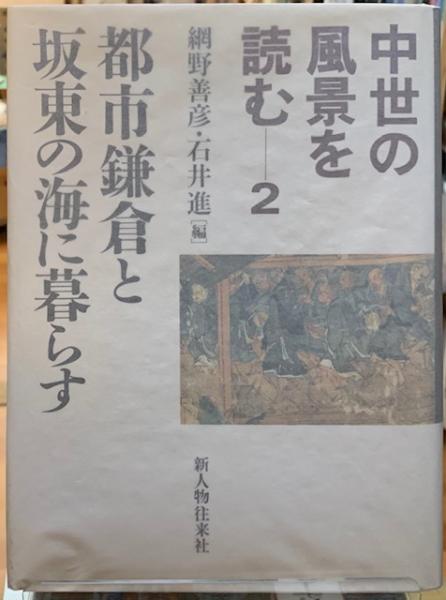 中世の
風景を
読む―2
網野善彦・石井進[編]
都市鎌倉と
坂東の海に暮らす
新人物往来社